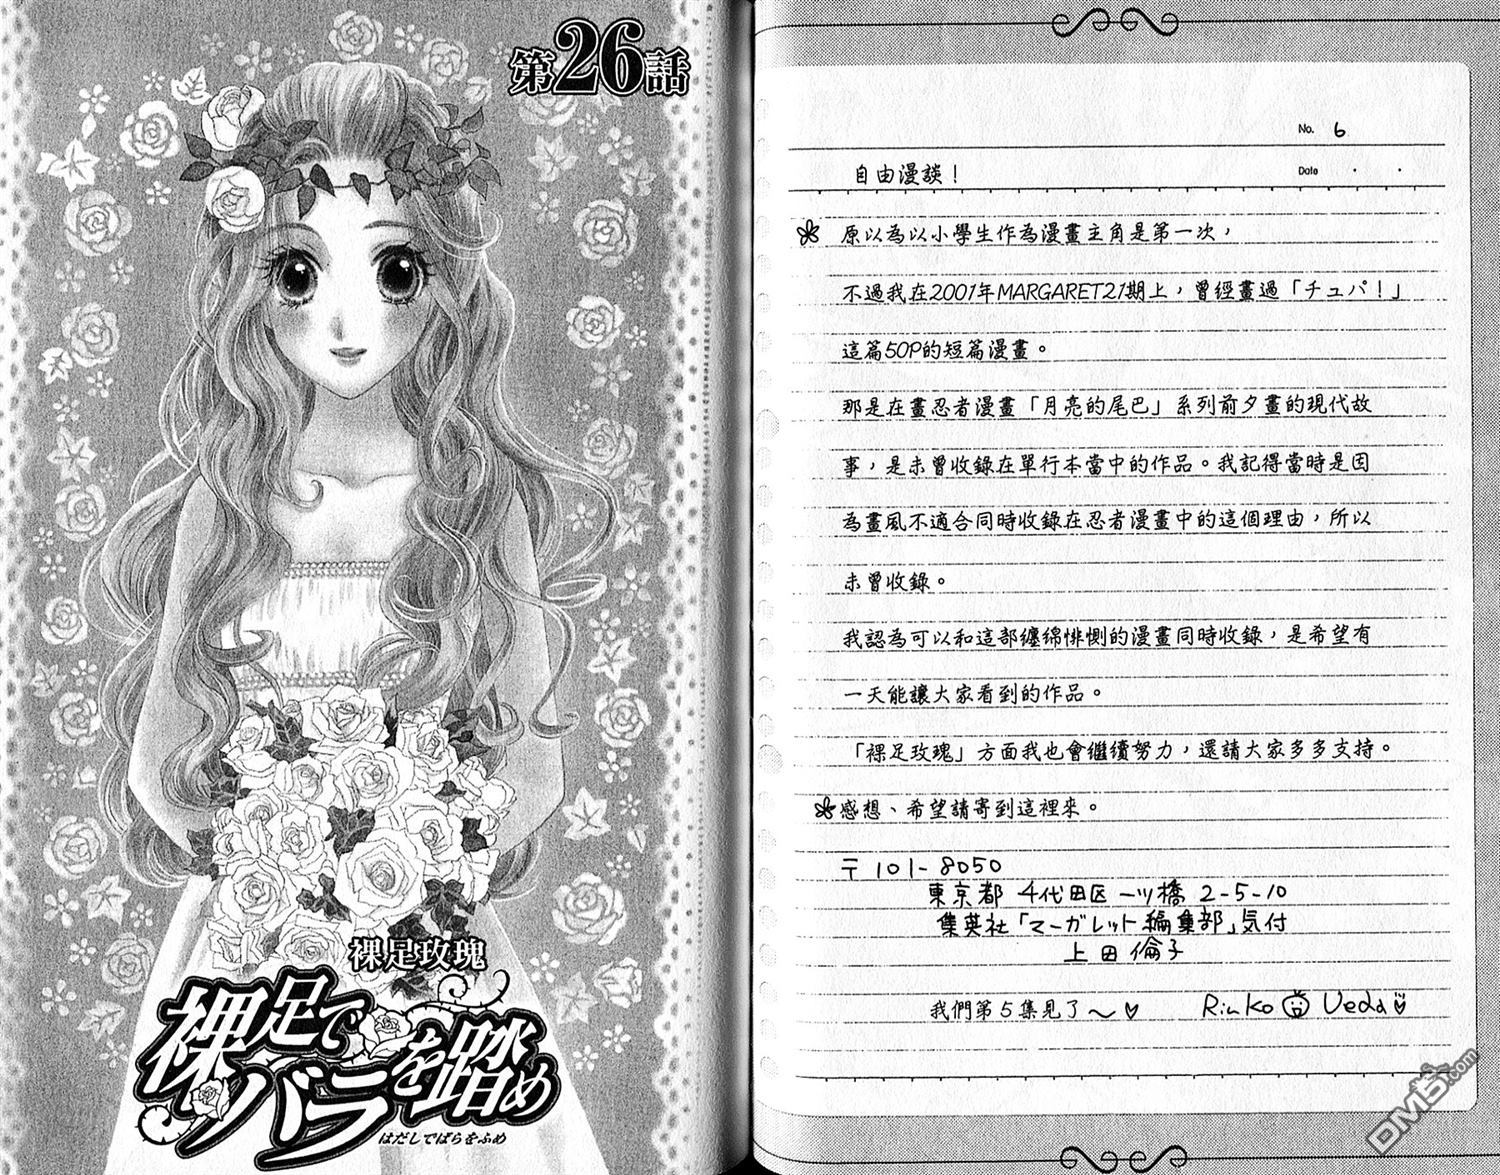 第26話
裸足玫瑰
裸足で
バラを踏め
はだしでばらをふめ
No. 6
自由漫談！
Date ・ ・
原以為以小學生作為漫畫主角是第一次，
不過我在2001年MARGARET21期上，曾經畫過「チュパ！」
這篇50P的短篇漫畫。
那是在畫忍者漫畫「月亮的尾巴」系列前夕畫的現代故
事，是未曾收錄在單行本當中的作品。我記得當時是因
為畫風不適合同時收錄在忍者漫畫中的這個理由，所以
未曾收錄。
我認為可以和這部纏綿悱惻的漫畫同時收錄，是希望有
一天能讓大家看到的作品。
「裸足玫瑰」方面我也會繼續努力，還請大家多多支持。
感想、希望請寄到這裡來。
〒101-8050
東京都 千代田区 一ツ橋 2-5-10
集英社「マーガレット編集部」気付
上田倫子
我們第5集見了～♡ Rinko Ueda
DM5.com